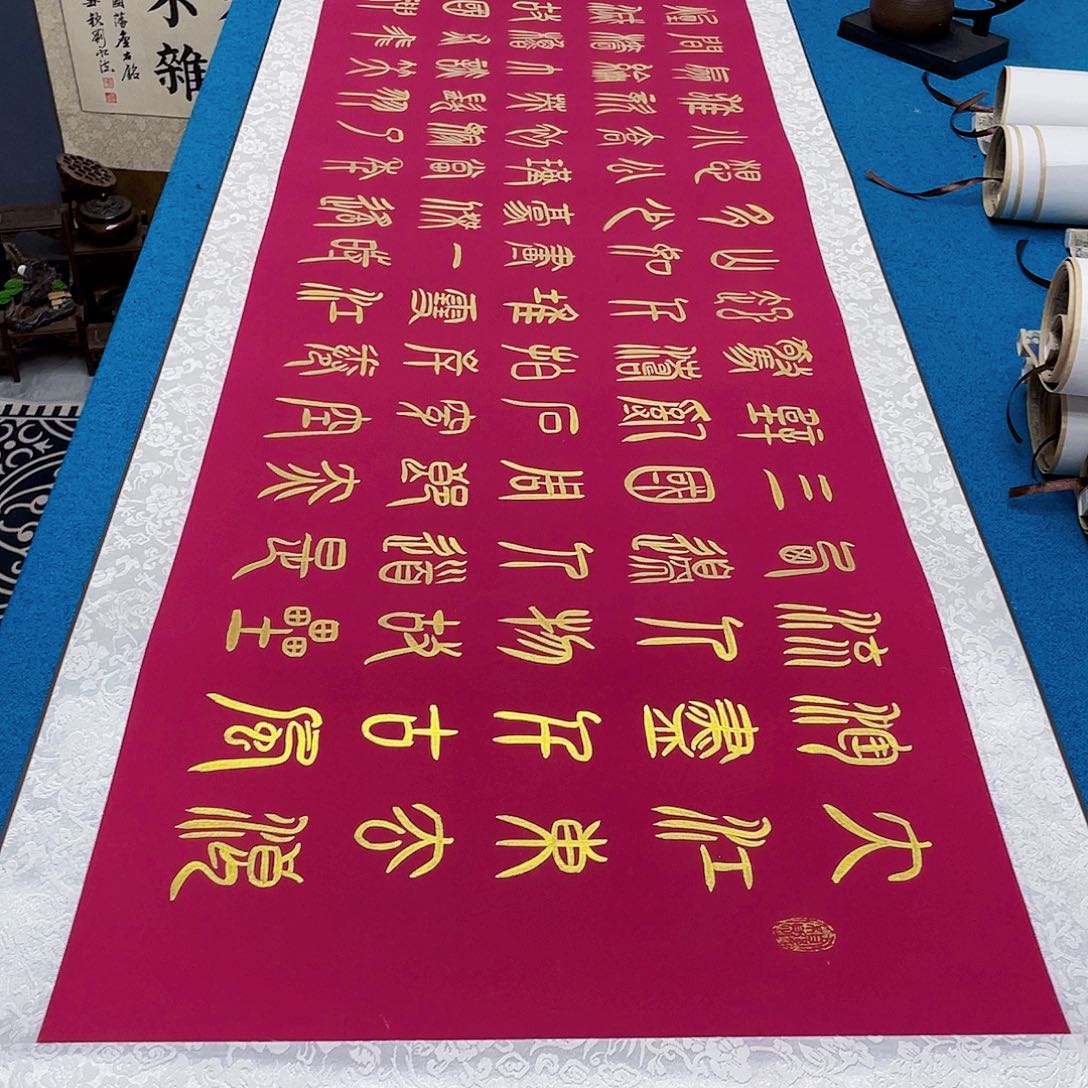 大江東去浪
淘盡千古風
流人物故壘
西邊人道是
三國周郎赤
壁亂石穿空
驚濤拍岸捲
起千堆雪江
山如畫一時
多少豪傑遙
想公瑾當年
小喬初嫁了
雄姿英發羽
扇綸巾談笑
間檣櫓灰飛
煙滅故國神
雜
國藩座右銘